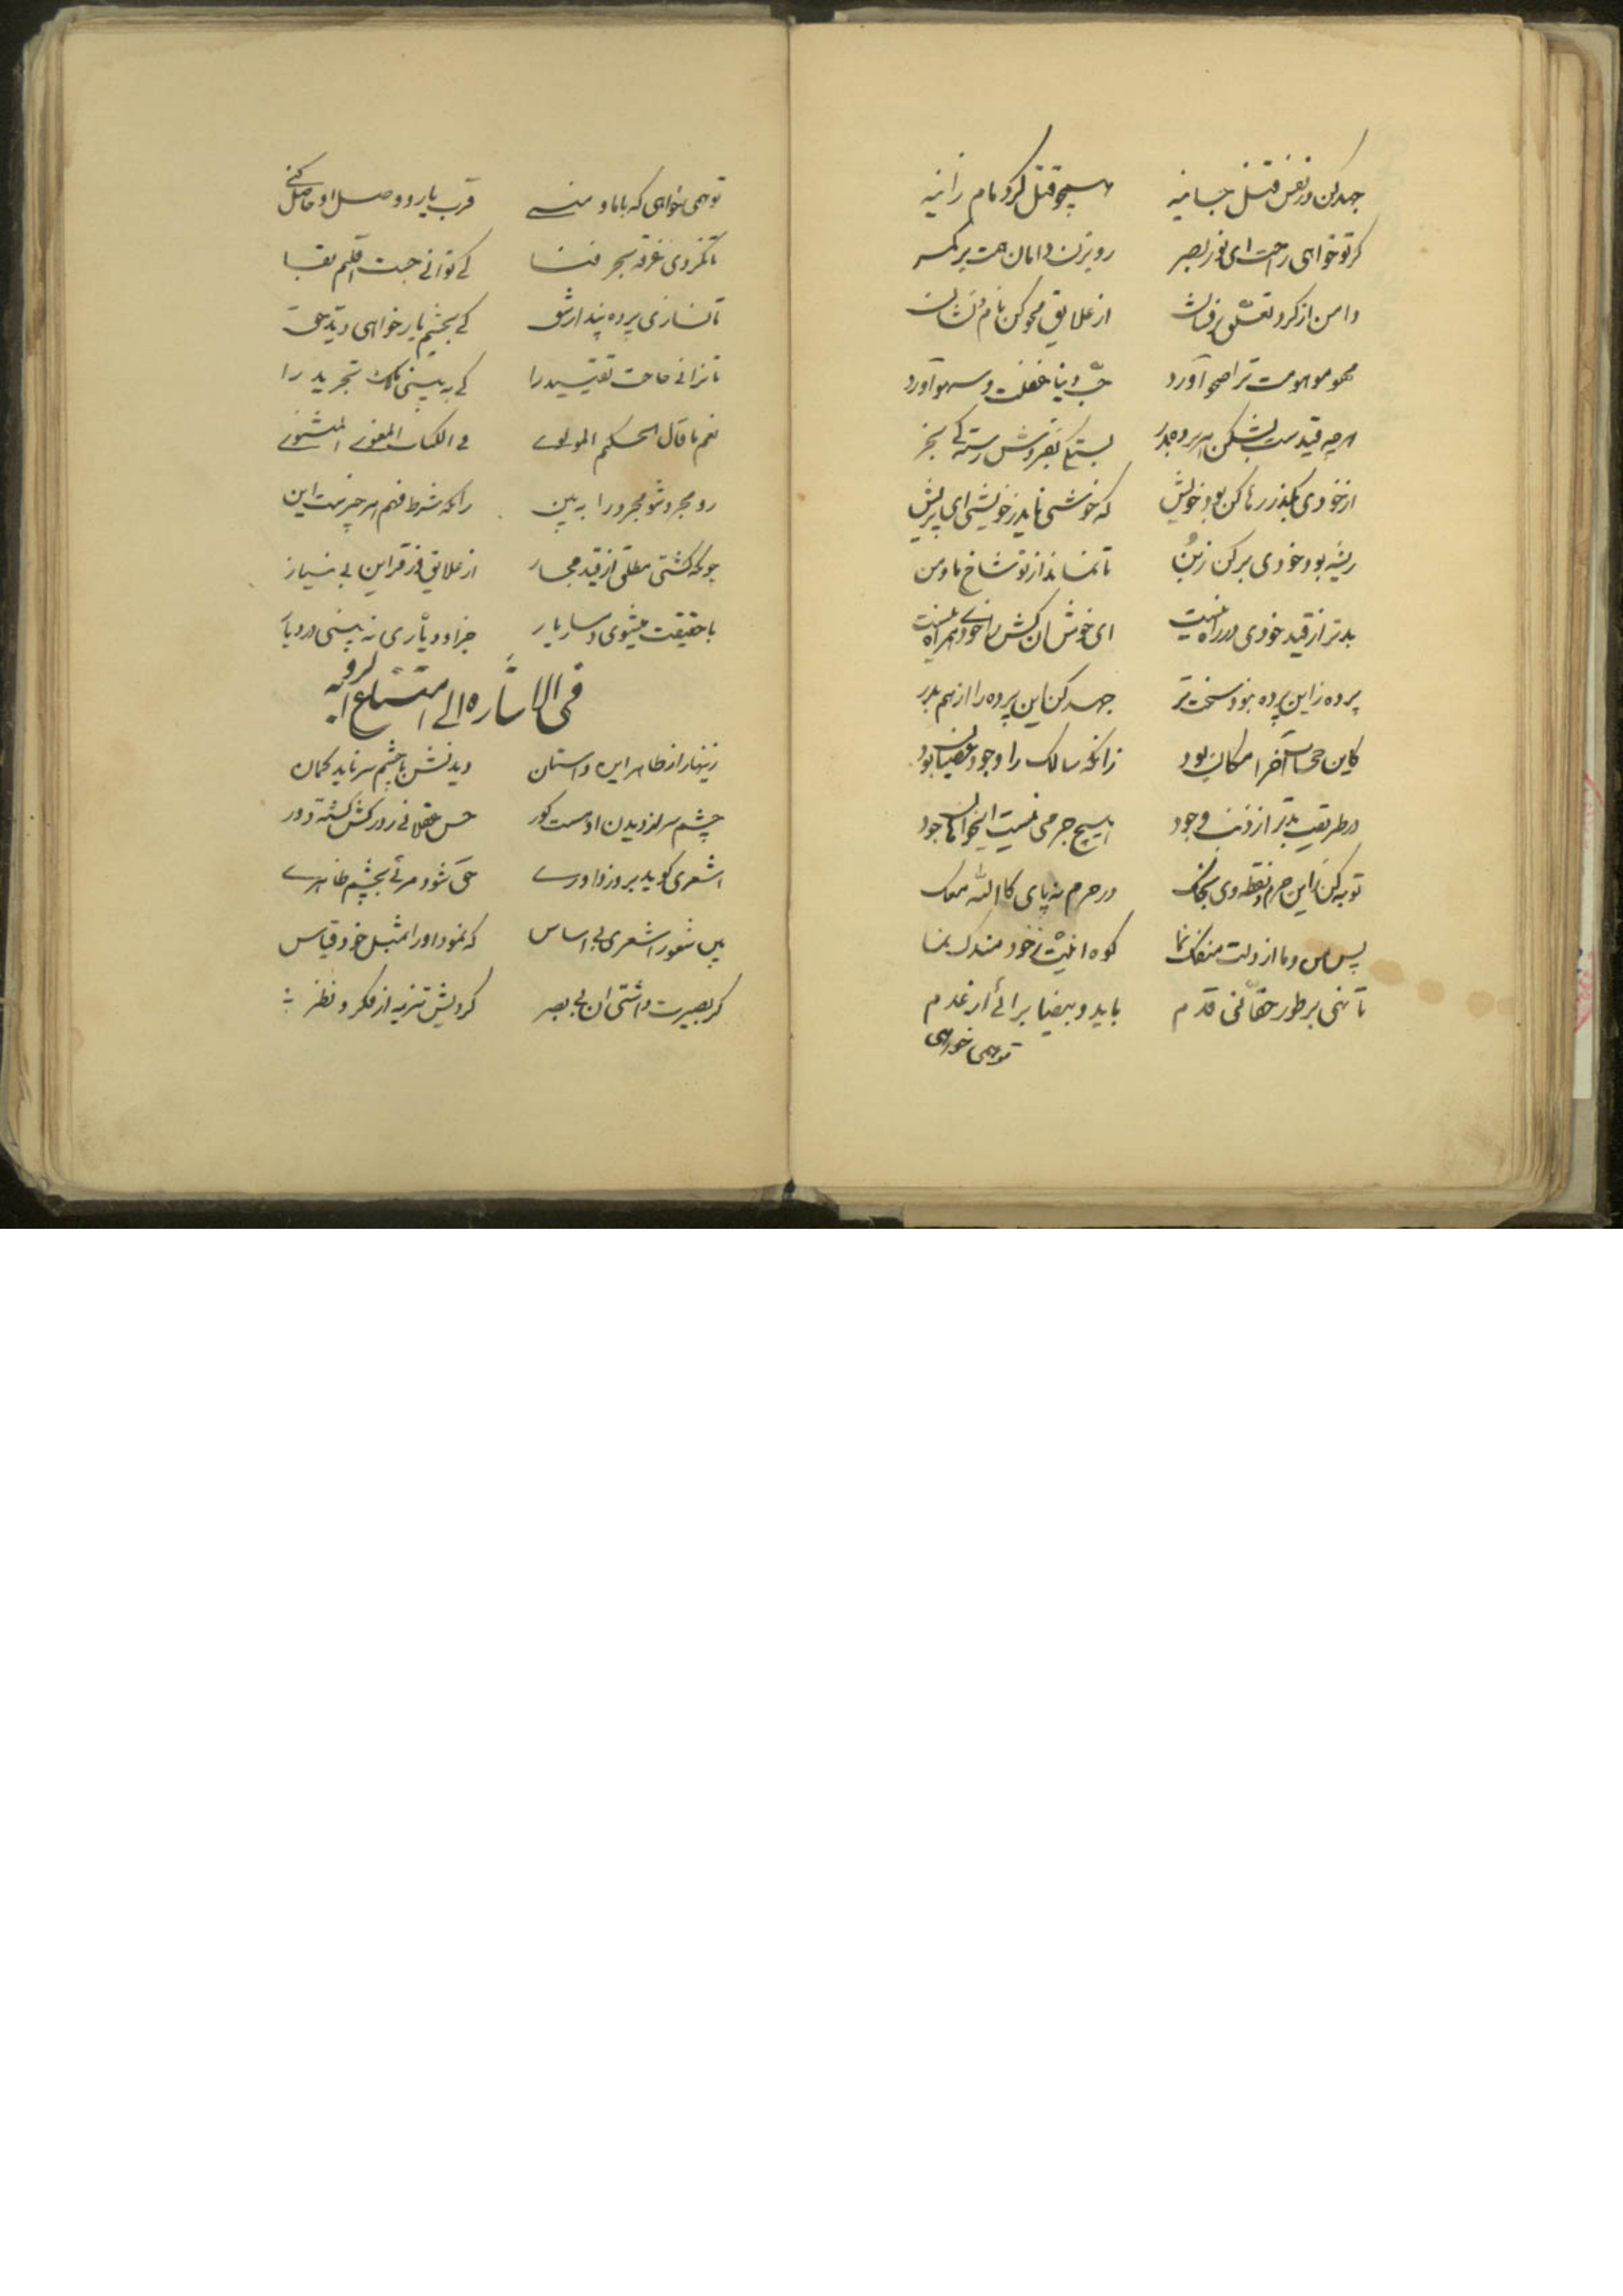 جهد کن در نفس قتل جانیه همچو قتل کرد مام زانیه
کر تو خواهی راحت ای نور بصر رو بزن دامان همت بر کمر
دامن از کرد تعلق بر فشان از علایق محو کن نام و نشان
محو موهومت ترا صحو آورد حب دنیا غفلت و سهو آورد
هر چه قیدست بشکن هر پرده بدر
از خودی بکذر رها کن بود خویش که خوشی ناید ز خویشی ای پریش
ریشه بود خودی بر کن ز بن تا نماند از تو شاخ ما و من
بدتر از قید خودی در راه نیست ای خوش آن کش خودی همراه نیست
پرده ز این پرده نبود سخت تر جهد کن این پرده را از هم بدر
کاین حجاب آخر امکان بود زانکه سالک را وجود عصیان بود
در طریقت بدتر از ذنب وجود هیچ جرمی نیست ای جود
توبه کن زاین جرم و نقطه وی بحک در حرم نه پای کالله معک
پس من و ما از دلت منفک نما کوه انیت ز خود مندک نما
تا نهی بر طور حقانی قدم باید و بیضا برائی از عدم
تو همی خواهی
تو همی خواهی که با ما و منی قرب یار و وصل او حاصل کنی
تا نکردی غرقه بحر فنا کی توانی جست اقلیم بقا
تا نسازی پرده پندار شق کی بچشم یار خواهی دید حق
تا نرانی حاجت تقیید را کی به بینی ملک تجرید را
نعم ما قال الحکیم المولوی فی الکتاب المعنوی المثنوی
رو مجرد شو مجرد را به بین زانکه شرط فهم هر چیزست این
چونکه کشتی مطلق از قید مجاز از علایق وز قراین بی نیاز
با حقیقت میشوی دمساز یار جز او دیاری نه بینی در دیار
فی الاشاره الی امتناع الرویه
زینهار از ظاهر این داستان دیدنش با چشم سر ناید کمان
چشم سر از دیدن او هست کور حس عقلانی ز درکش کشته دور
اشعری کوید بروز داوری حق شود مرئی بچشم ظاهری
بین شعور اشعری بی اساس که نمود او را بمثل خود قیاس
کر بصیرت داشتی آن بی بصر کردیش تنزیه از فکر و نظر